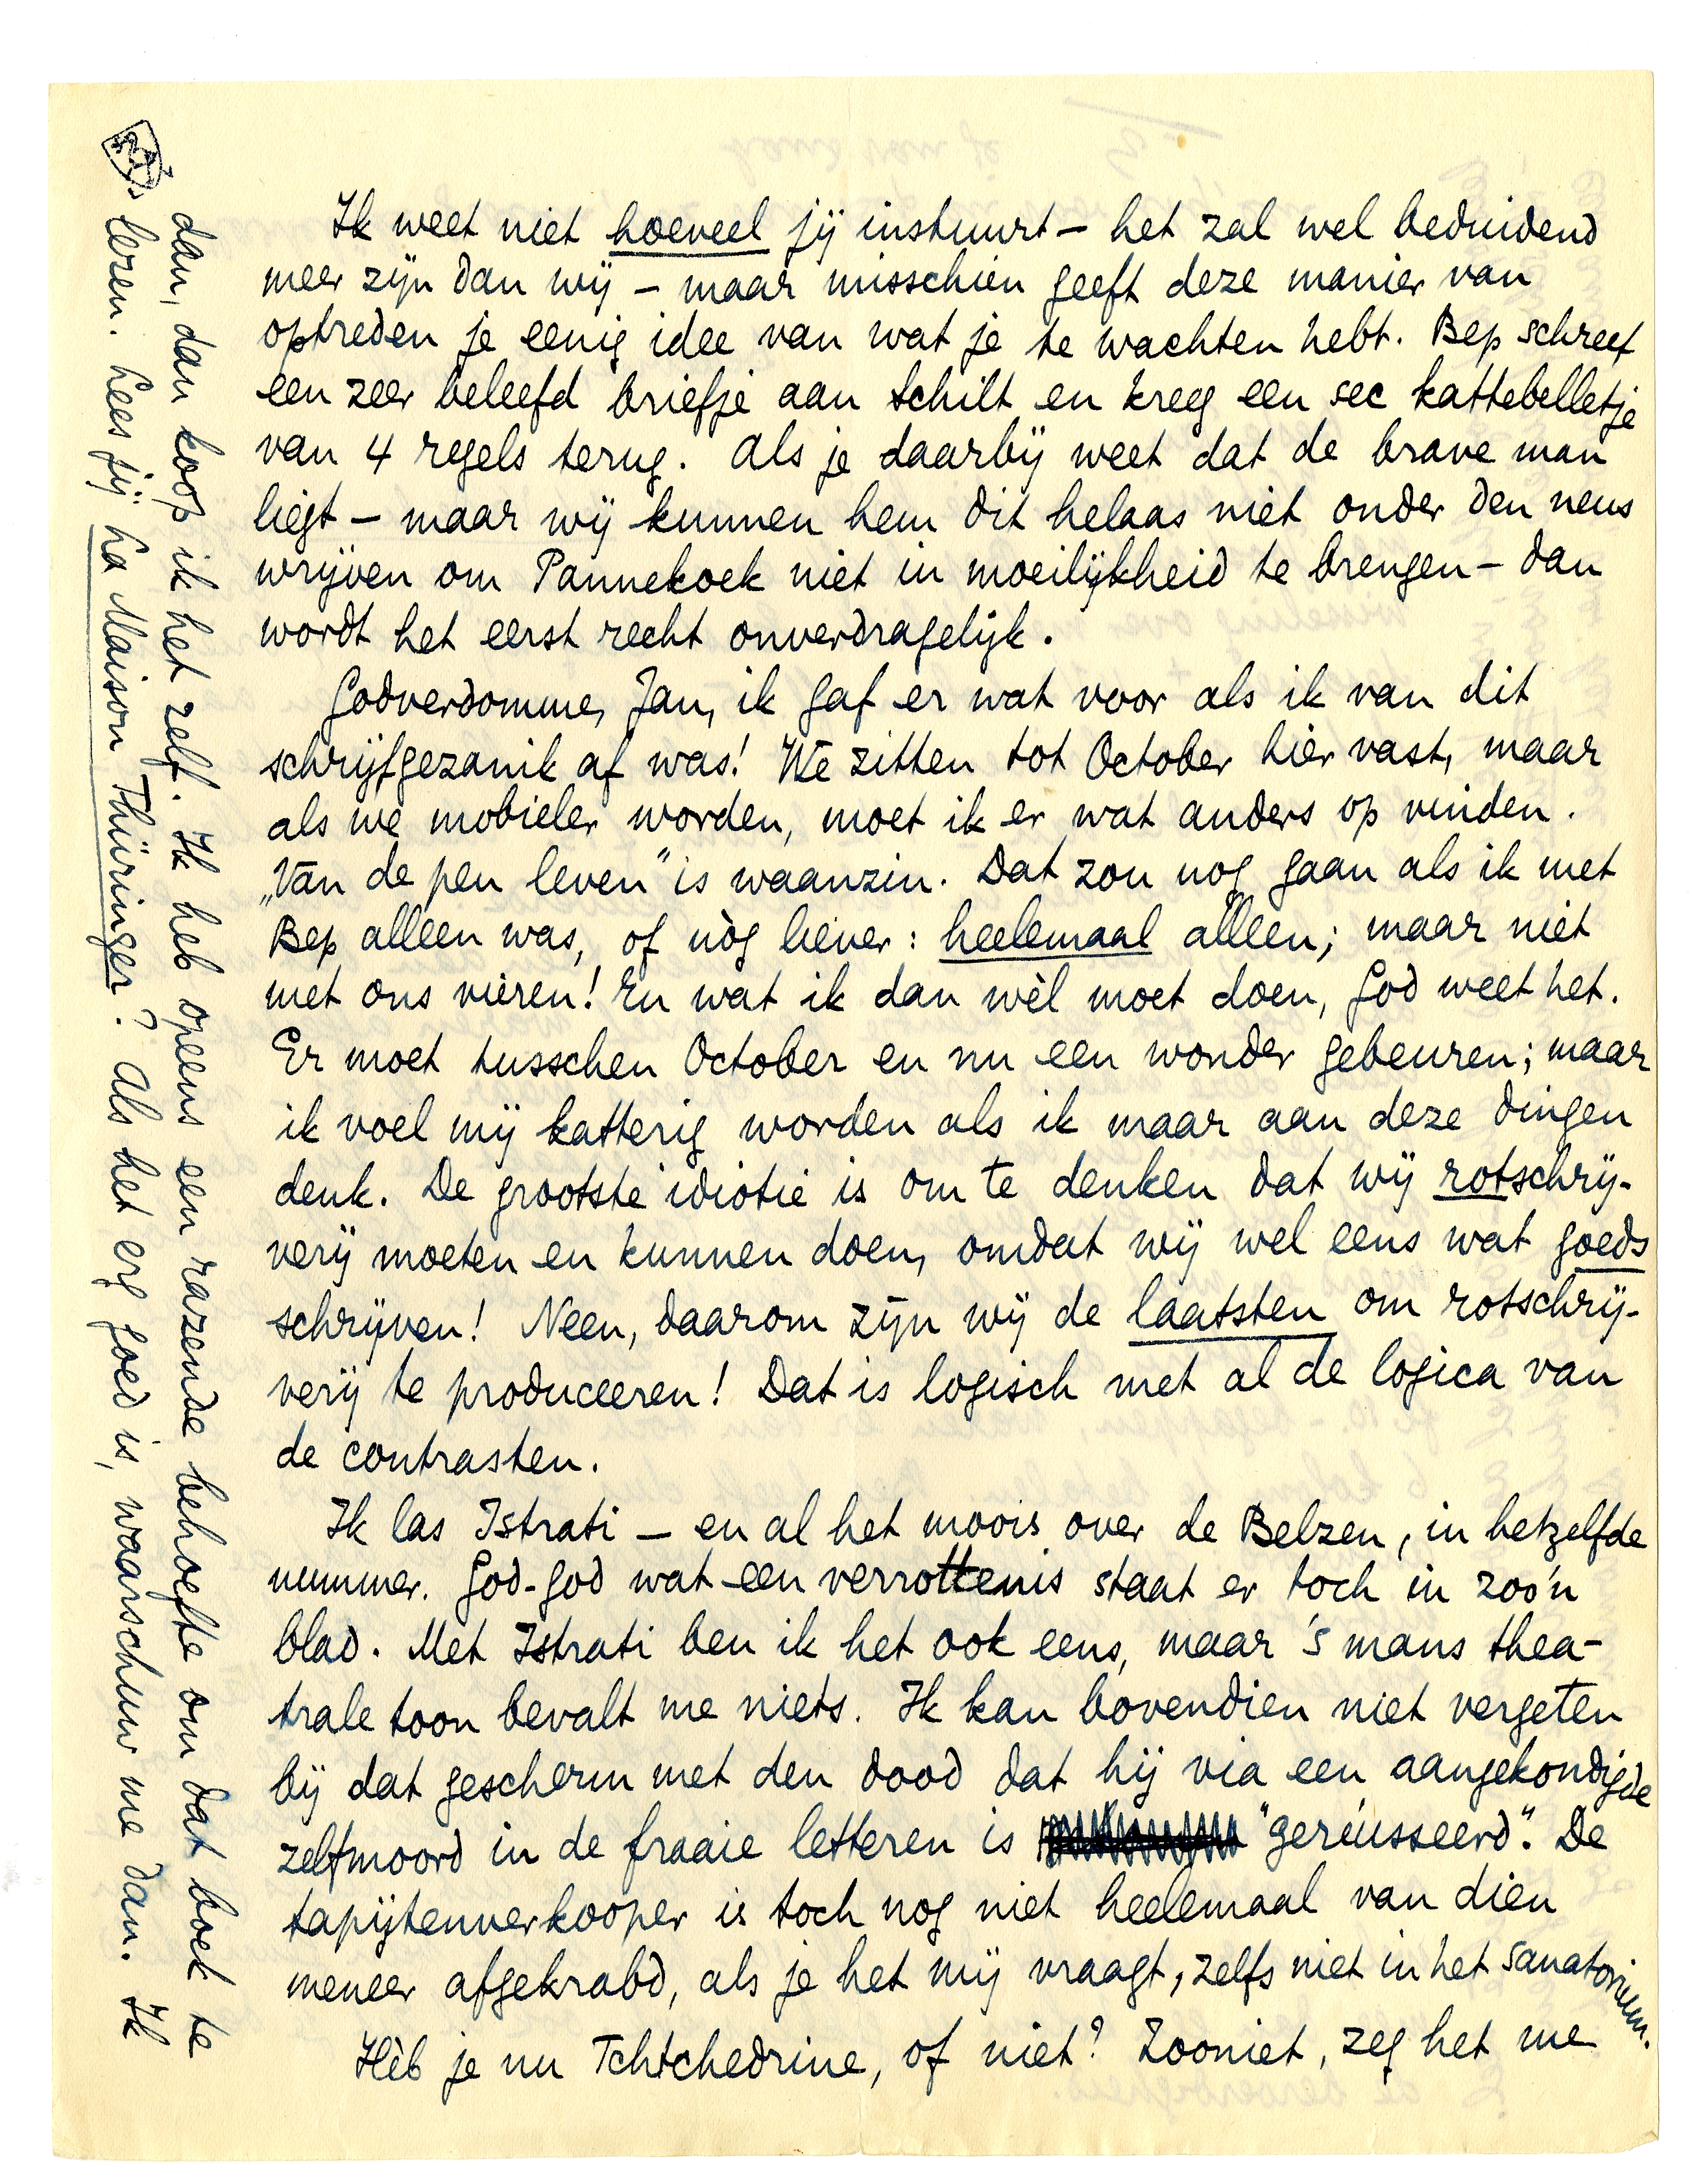 Ik weet niet hoeveel jij instuurt – het zal wel beduidend
meer zijn dan wij – maar misschien geeft deze manier van
optreden je eenig idee van wat je te wachten hebt. Bep schreef
een zeer beleefd briefje aan Schilt en kreeg een sec kattebelletje
van 4 regels terug. Als je daarbij weet dat de brave man
liegt – maar wij kunnen hem dit helaas niet onder den neus
wrijven om Pannekoek niet in moeilijkheid te brengen – dan
wordt het eerst recht onverdragelijk.
Godverdomme, Jan, ik gaf er wat voor als ik van dit
schrijfgezanik af was! We zitten tot October hier vast, maar
als we mobieler worden, moet ik er wat anders op vinden.
„Van de pen leven" is waanzin. Dat zou nog gaan als ik met
Bep alleen was, of nòg liever: heelemaal alleen; maar niet
met ons vieren! En wat ik dan wèl moet doen, God weet het.
Er moet tusschen October en nu een wonder gebeuren; maar
ik voel mij katterig worden als ik maar aan deze dingen
denk. De grootste idiotie is om te denken dat wij rotschrij-
verij moeten en kunnen doen, omdat wij wel eens wat goeds
schrijven! Neen, daarom zijn wij de laatsten om rotschrij-
verij te produceeren! Dat is logisch met al de logica van
de contrasten.
Ik las Istrati – en al het moois over de Belzen, in hetzelfde
nummer. God-god wat een verrottenis staat er toch in zoo'n
blad. Met Istrati ben ik het ook eens, maar 's mans thea-
trale toon bevalt me niets. Ik kan bovendien niet vergeten
bij dat gescherm met den dood dat hij via een aangekondigde
zelfmoord in de fraaie letteren is "gereüsseerd". De
tapijtenverkooper is toch nog niet heelemaal van dien
meneer afgekrabd, als je het mij vraagt, zelfs niet in het sanatorium.
Hèb je nu Tchtchedrine, of niet? Zooniet, zeg het me
dan, dan koop ik het zelf. Ik heb opeens een razende behoefte om dat boek te
lezen. Lees jij La Maison Thüringer? Als het erg goed is, waarschuw me dan. Ik